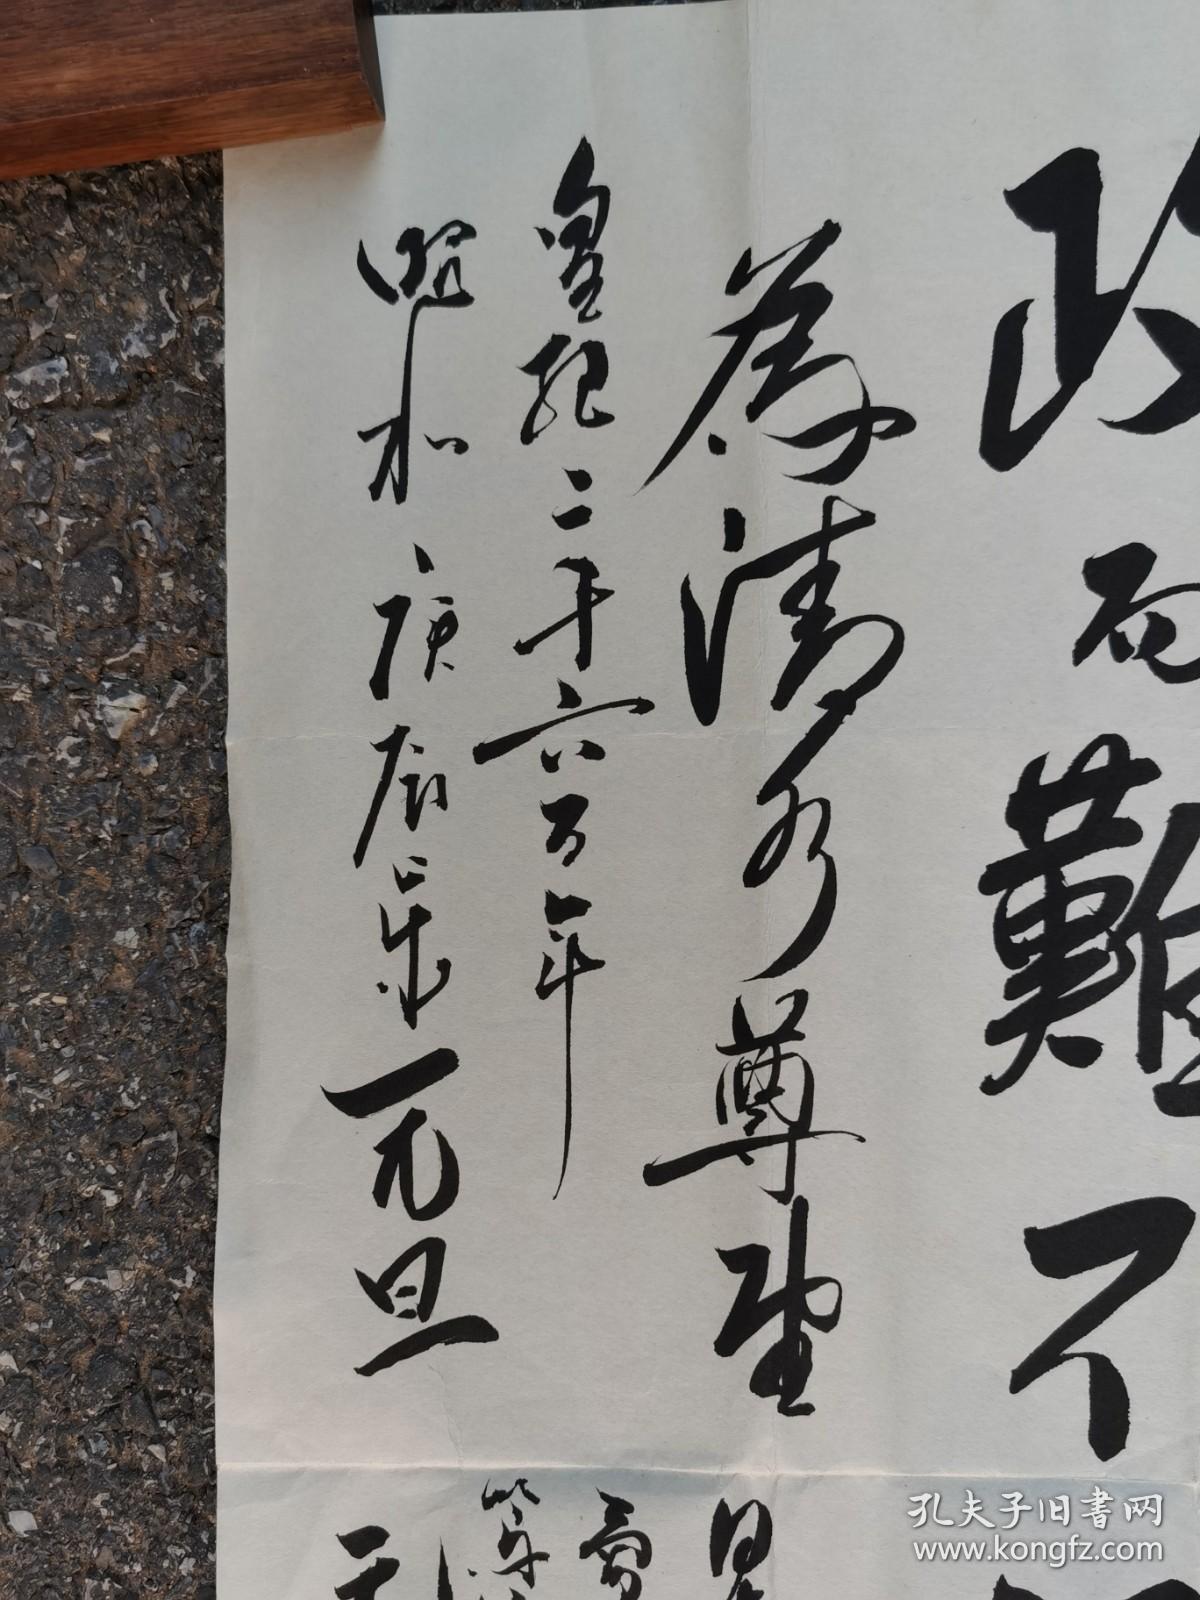 而難不
為清水尊
皇紀二千六百年
昭和庚辰歳元旦
孔夫子旧书网
www.kongfz.com